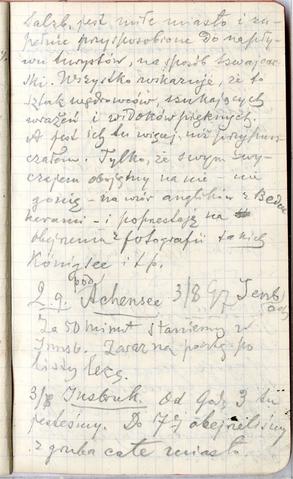 Salzb. jest miłe miasto i zu-
pełnie przysposobione do napły-
wu turystów, na sposób szwajcar-
ski. Wszystko wskazuje, że to
szlak wędrowców, szukających
wrażeń i widoków pięknych.
A jest ich tu więcej, niż przypusz-
czałem. Tylko, że swym zwy-
czajem obojętny na nie - nie
gonię - na wzór anglików z Bede-
kerami - i poprzestaję na
obejrzeniu z fotografii takich
Königsee i t.p.
pod
2 g. Achensee 3/8 Jenb
Za 50 minut staniemy w
Innsb. Zaraz na pocztę po
listy lecę.
3/8 Insbruk. Od godz 3 tu
jesteśmy. Do 7ej obejrzeliśmy
z gruba całe miasto.